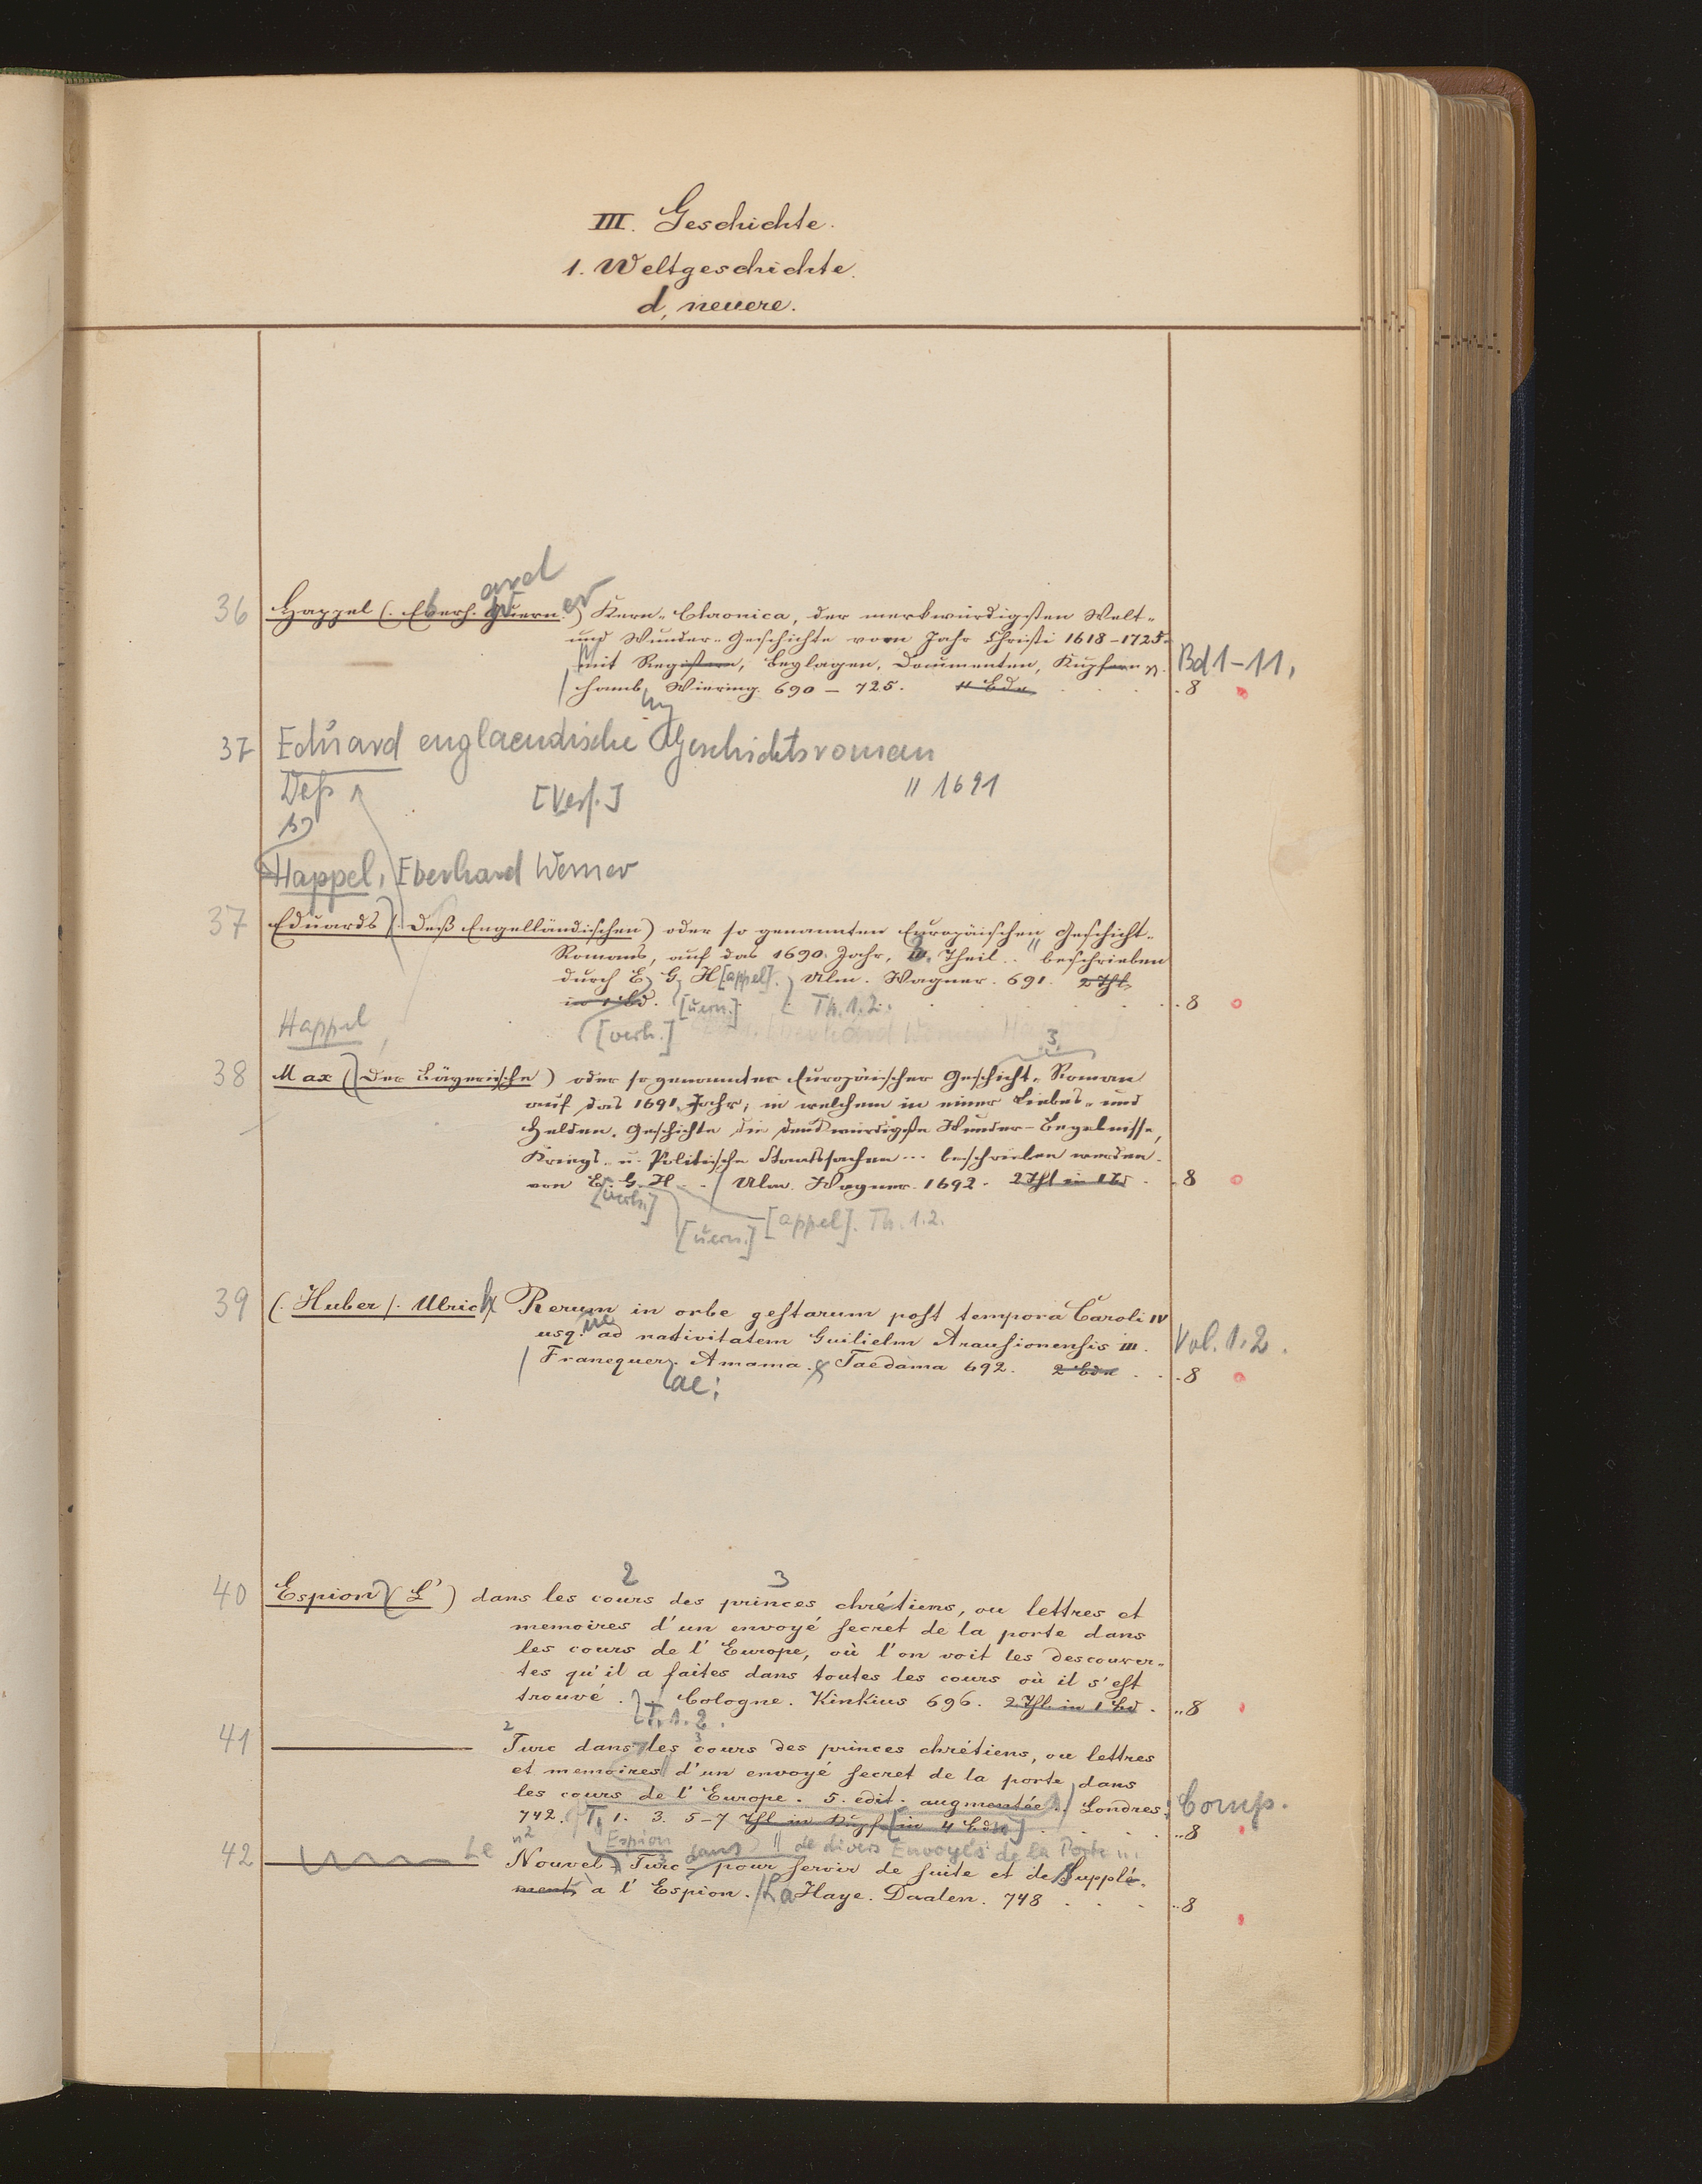 III. Geschichte.
1. Weltgeschichte.
d, neuere.
ard
36 Happel (: Eberh. Guern. er) Kern-Chronica, der merkwürdigsten Welt-
und Wunder-Geschichte vom Jahr Christi 1618-1725.
mit Registern, Beylagen, Documenten, Kupfern p. Bd 1-11,
Hamb. Wiering. 690 - 725. 11 Bde . . . 8
37 Eduard englaendische Geschichtsroman
Deß [Verf.] || 1691
Happel, Eberhard Werner
37 Eduards (Deß Engelländischen) oder so genannten Europäischen Geschicht-
Romans, auf das 1690. Jahr, Theil .. || beschrieben
durch E. G. H[appel]. Ulm. Wagner. 691. 2 Thl.
in 1 Bd. [uern.] Th. 1.2. . . 8
Happel [verh.]
3
38 Max (Der Bäyerische) oder so genannter Europäischer Geschicht-Roman
auf das 1691. Jahr; in welchem in einer Liebes- und
Helden-Geschichte die denkwürdigste Wunder-Begebnisse,
Kriegs- u. Politische Staatssachen ... beschrieben werden.
von E. G. H. . / Ulm. Wagner. 1692. 2 Thl in 1 Bd . 8
[uern.] [appel]. Th. 1.2.
39 (. Huber /. Ulrich Rerum in orbe gestarum post tempora Caroli IV
usq. ue ad nativitatem Guilielm Arausionensis III. Vol. 1.2.
Franequer. Amama. & Taedama 692. 2 Bde . . 8
ae;
2 3
40 Espion (L') dans les cours des princes chrétiens, ou lettres et
memoires d'un envoyé secret de la porte dans
les cours de l'Europe, où l'on voit les descouver-
tes qu'il a faites dans toutes les cours où il s'est
trouvé. Cologne. Kinkius 696. 2 Thl. in 1 Bd . .. 8
T. 1. 2.
2 3
41 Turc dans les cours des princes chrétiens, ou lettres
et memoires d'un envoyé secret de la porte dans
les cours de l'Europe. 5. edit. augmentée. Londres; Comp.
742. T. 1. 3. 5-7 Thl. in Kupf [in 4 Bdn] . .. 8
Espion dans || de divers Envoyés de la Porte ...
42 Le Nouvel Turc pour servir de suite et de Supplé-
ment à l'Espion. La Haye. Daalen. 748 . . . .. 8